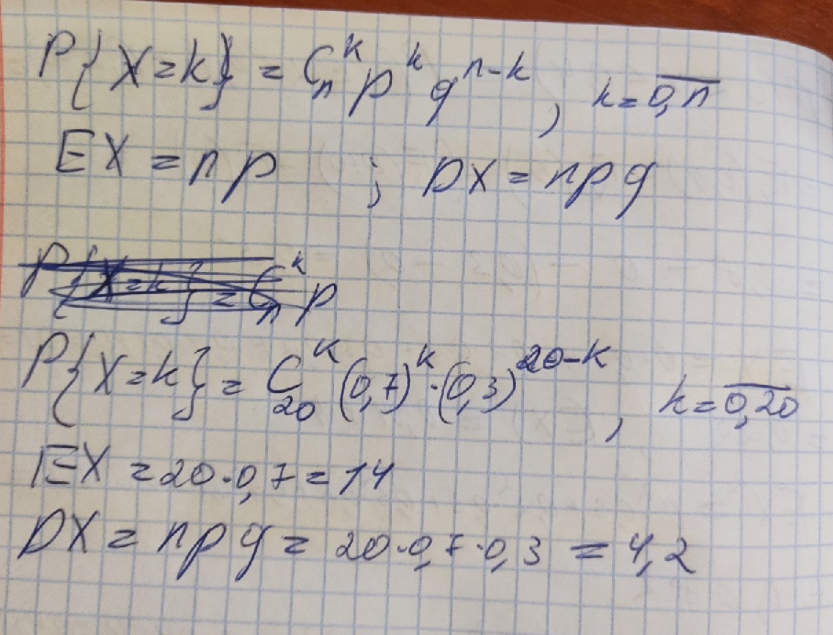 P{X=k} = Cₙᵏ pᵏ qⁿ⁻ᵏ, k=0,n̅
EX = np ; DX = npq
P{X=k} = Cₙᵏ p
P{X=k} = C₂₀ᴷ (0,7)ᵏ·(0,3)²⁰⁻ᴷ, k=0,20
EX = 20·0,7 = 14
DX = npq = 20·0,7·0,3 = 4,2